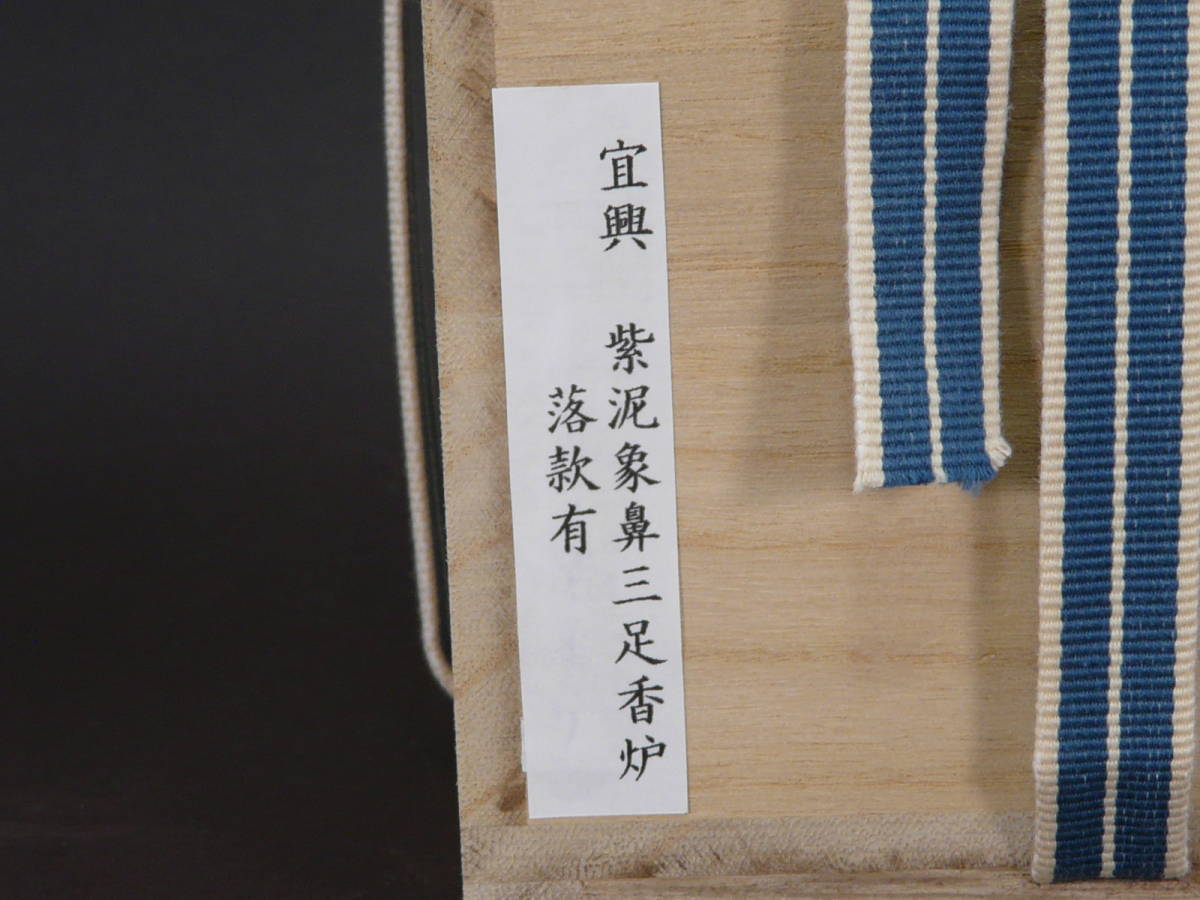 宜興　紫泥象鼻三足香炉
落款有